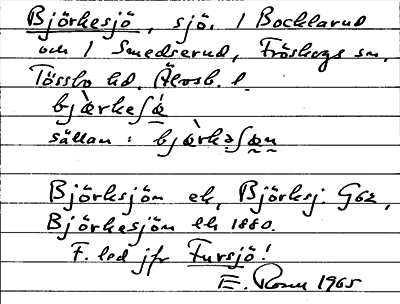 Björkesjö, sjö. 1 Bocklarud
och 1 Smedserud, Fröskogs sn,
Tössbo hd. Älvsb. l.
bjæ̀rkeʃǽ
sällan : bjærkəʃæn
Björksjön ek, Björksj. Göz,
Björkesjön lk 1880.
F. led jfr Fursjö!
E. Rosen 1965